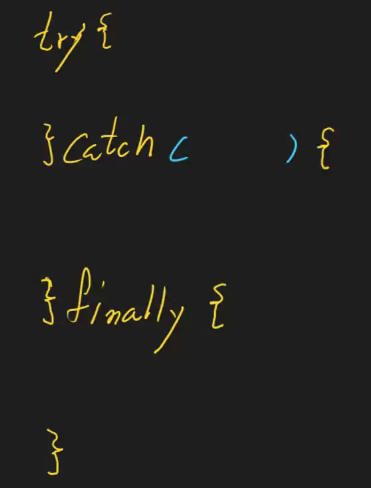 try {
} catch ( ) {
} finally {
}